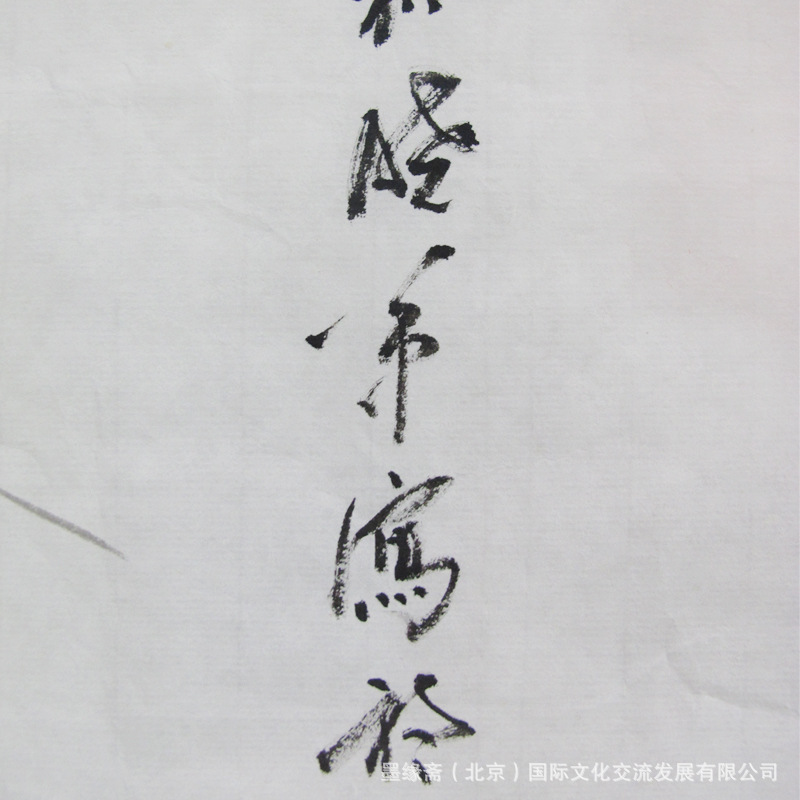 晓军寫於
墨缘斋（北京）国际文化交流发展有限公司